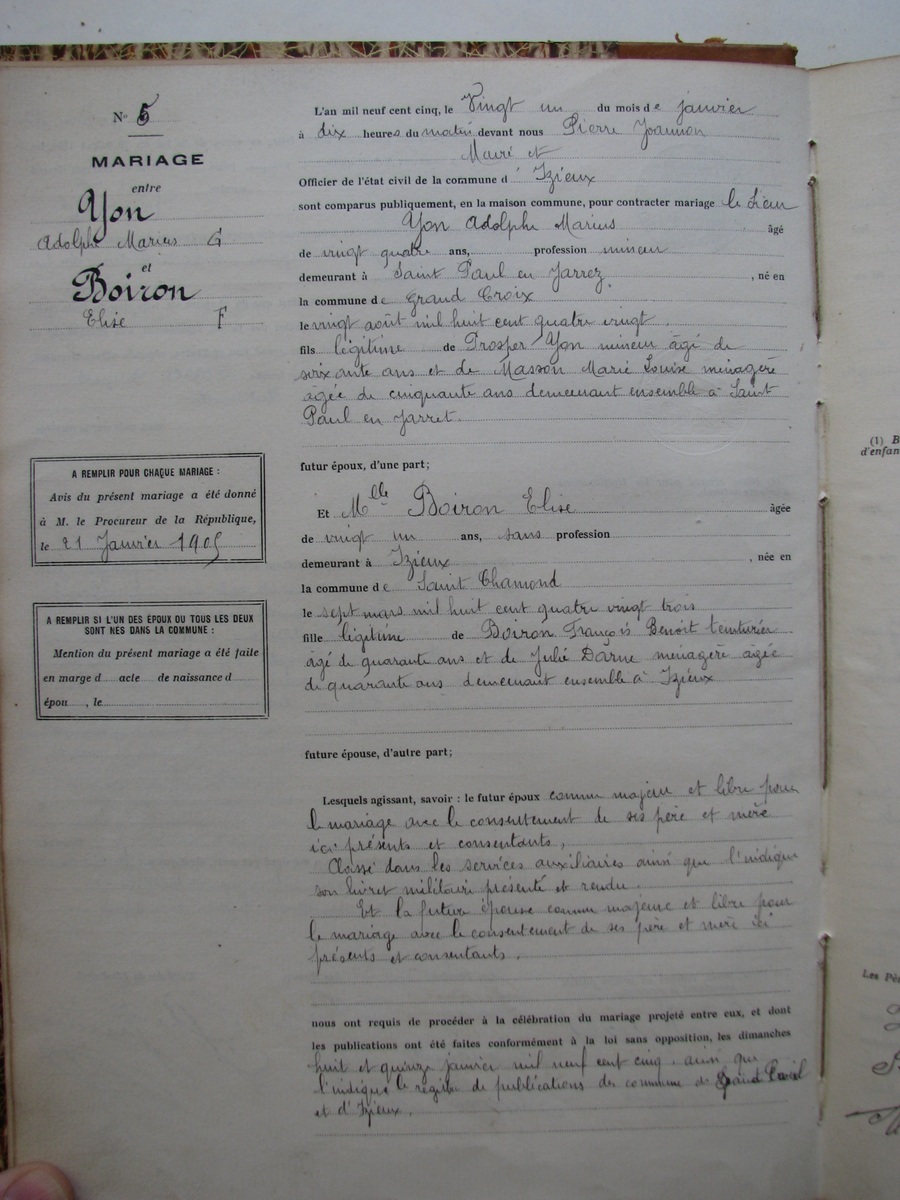 N° 5
MARIAGE
entre
Yon
Adolphe Marius G
et
Boiron
Elise F
A REMPLIR POUR CHAQUE MARIAGE :
Avis du présent mariage a été donné
à M. le Procureur de la République,
le 21 Janvier 1905
A REMPLIR SI L'UN DES ÉPOUX OU TOUS LES DEUX
SONT NÉS DANS LA COMMUNE :
Mention du présent mariage a été faite
en marge d acte de naissance d
épou , le
L'an mil neuf cent cinq, le Vingt un du mois de janvier
à dix heures du matin devant nous Pierre Joannon
Maire et
Officier de l'état civil de la commune d' Izieux
sont comparus publiquement, en la maison commune, pour contracter mariage le Sieur
Yon Adolphe Marius âgé
de vingt quatre ans, profession mineur
demeurant à Saint Paul en Jarrez , né en
la commune de Grand Croix
le vingt août mil huit cent quatre vingt .
fils légitime de Prosper Yon mineur âgé de
soixante ans et de Masson Marie Louise ménagère
âgée de cinquante ans demeurant ensemble à Saint
Paul en Jarret.
futur époux, d'une part;
Et Mlle Boiron Elise âgée
de vingt un ans, sans profession
demeurant à Izieux , née en
la commune de Saint Chamond
le sept mars mil huit cent quatre vingt trois
fille légitime de Boiron François Benoit teinturier
âgé de quarante ans et de Julie Darne ménagère âgée
de quarante ans demeurant ensemble à Izieux
future épouse, d'autre part;
Lesquels agissant, savoir : le futur époux comme majeur et libre pour
le mariage avec le consentement de ses père et mère
ici présents et consentants,
Classé dans les services auxiliaires ainsi que l'indique
son livret militaire présenté et rendu.
Et la future épouse comme majeure et libre pour
le mariage avec le consentement de ses père et mère ici
présents et consentants.
nous ont requis de procéder à la célébration du mariage projeté entre eux, et dont
les publications ont été faites conformément à la loi sans opposition, les dimanches
huit et quinze janvier mil neuf cent cinq. ainsi que
l'indique le registre de publications des commune de
et d'Izieux.
(1) B
d'enfan
Les Pè